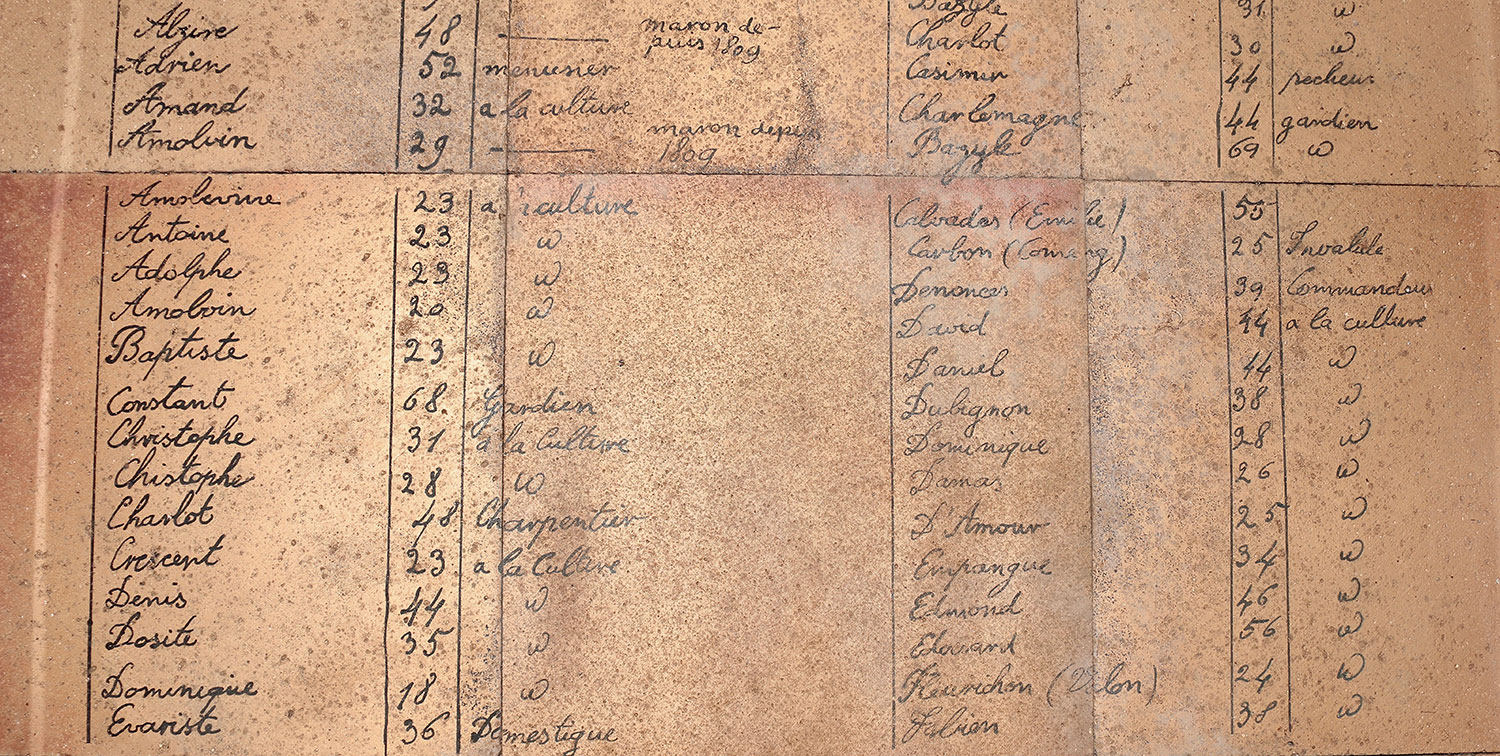 Alzire 48 maron de-
puis 1809
Adrien 52 menusier
Amand 32 a la culture
Amolvin 29 maron depuis
1809
Amolevrine 23 a culture
Antoine 23 w
Adolphe 23 w
Amoloin 20 w
Baptiste 23 w
Constant 68. Gardien
Christophe 31 a la Culture
Chistophe 28 w
Charlot 48 Charpentier
Crescent 23 a la Culture
Denis 44 w
Dosite 35 w
Dominique 18 w
Evariste 36 Domestique
Bazyle 31 w
Charlot 30 w
Casimir 44 pecheur
Charlemagne 44 gardien
Bazyle 69 w
Calvados (Emilie) 55
Carbon ( 25 Invalide
Denonces 39 Commandeur
David 44 a la culture
Daniel 44 w
Dubignon 38 w
Dominique 28 w
Damas 26 w
D'Amour 25 w
Empangue 34 w
Edmond 46 w
Edouard 56 w
Fleurichon ( 24 w
Fabien 38 w